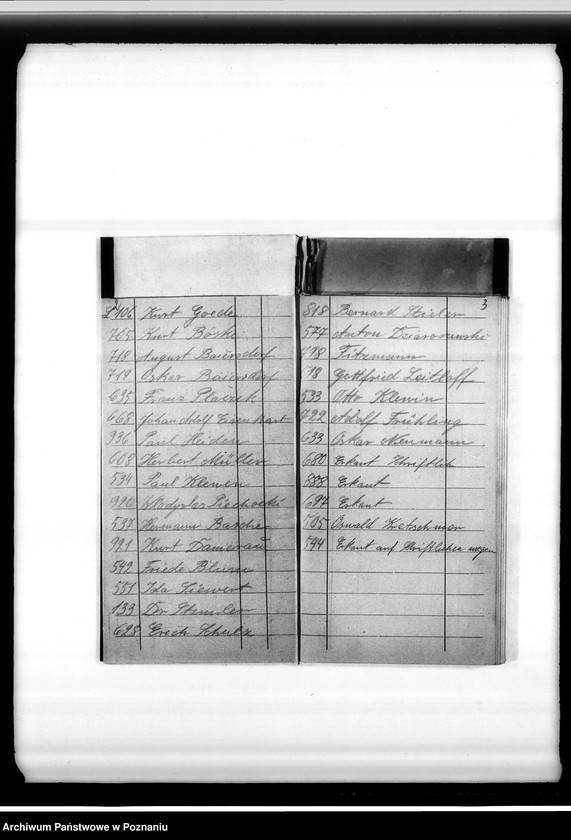 106 Kurt Goede
705 Kurt Böske
718 August Baiersdorf
719 Oskar Baiersdorf
635 Franz Placzek
668 Johann Adolf
936 Paul Heiden
608 Herbert Müller
534 Paul Klewin
990 Wladyslav Piechocki
537 Hermann Basche
991 Kurt Damerau
542 Friede Blum
551 Ida Siewert
133 Dr Stemler
628 Erich Schulz
3
818 Bernard Stieler
577 Anton
718 Fitzmann
718 Gottfried Leitloff
533 Otto Klewin
722 Adolf Frühling
633 Oskar Neumann
680 Erkaut Schriftlich
688 Erkaut
697 Erkaut
505 Oswald Kretschmer
544 Erkaut auf Schriftlichen wegen
Archiwum Państwowe w Poznaniu